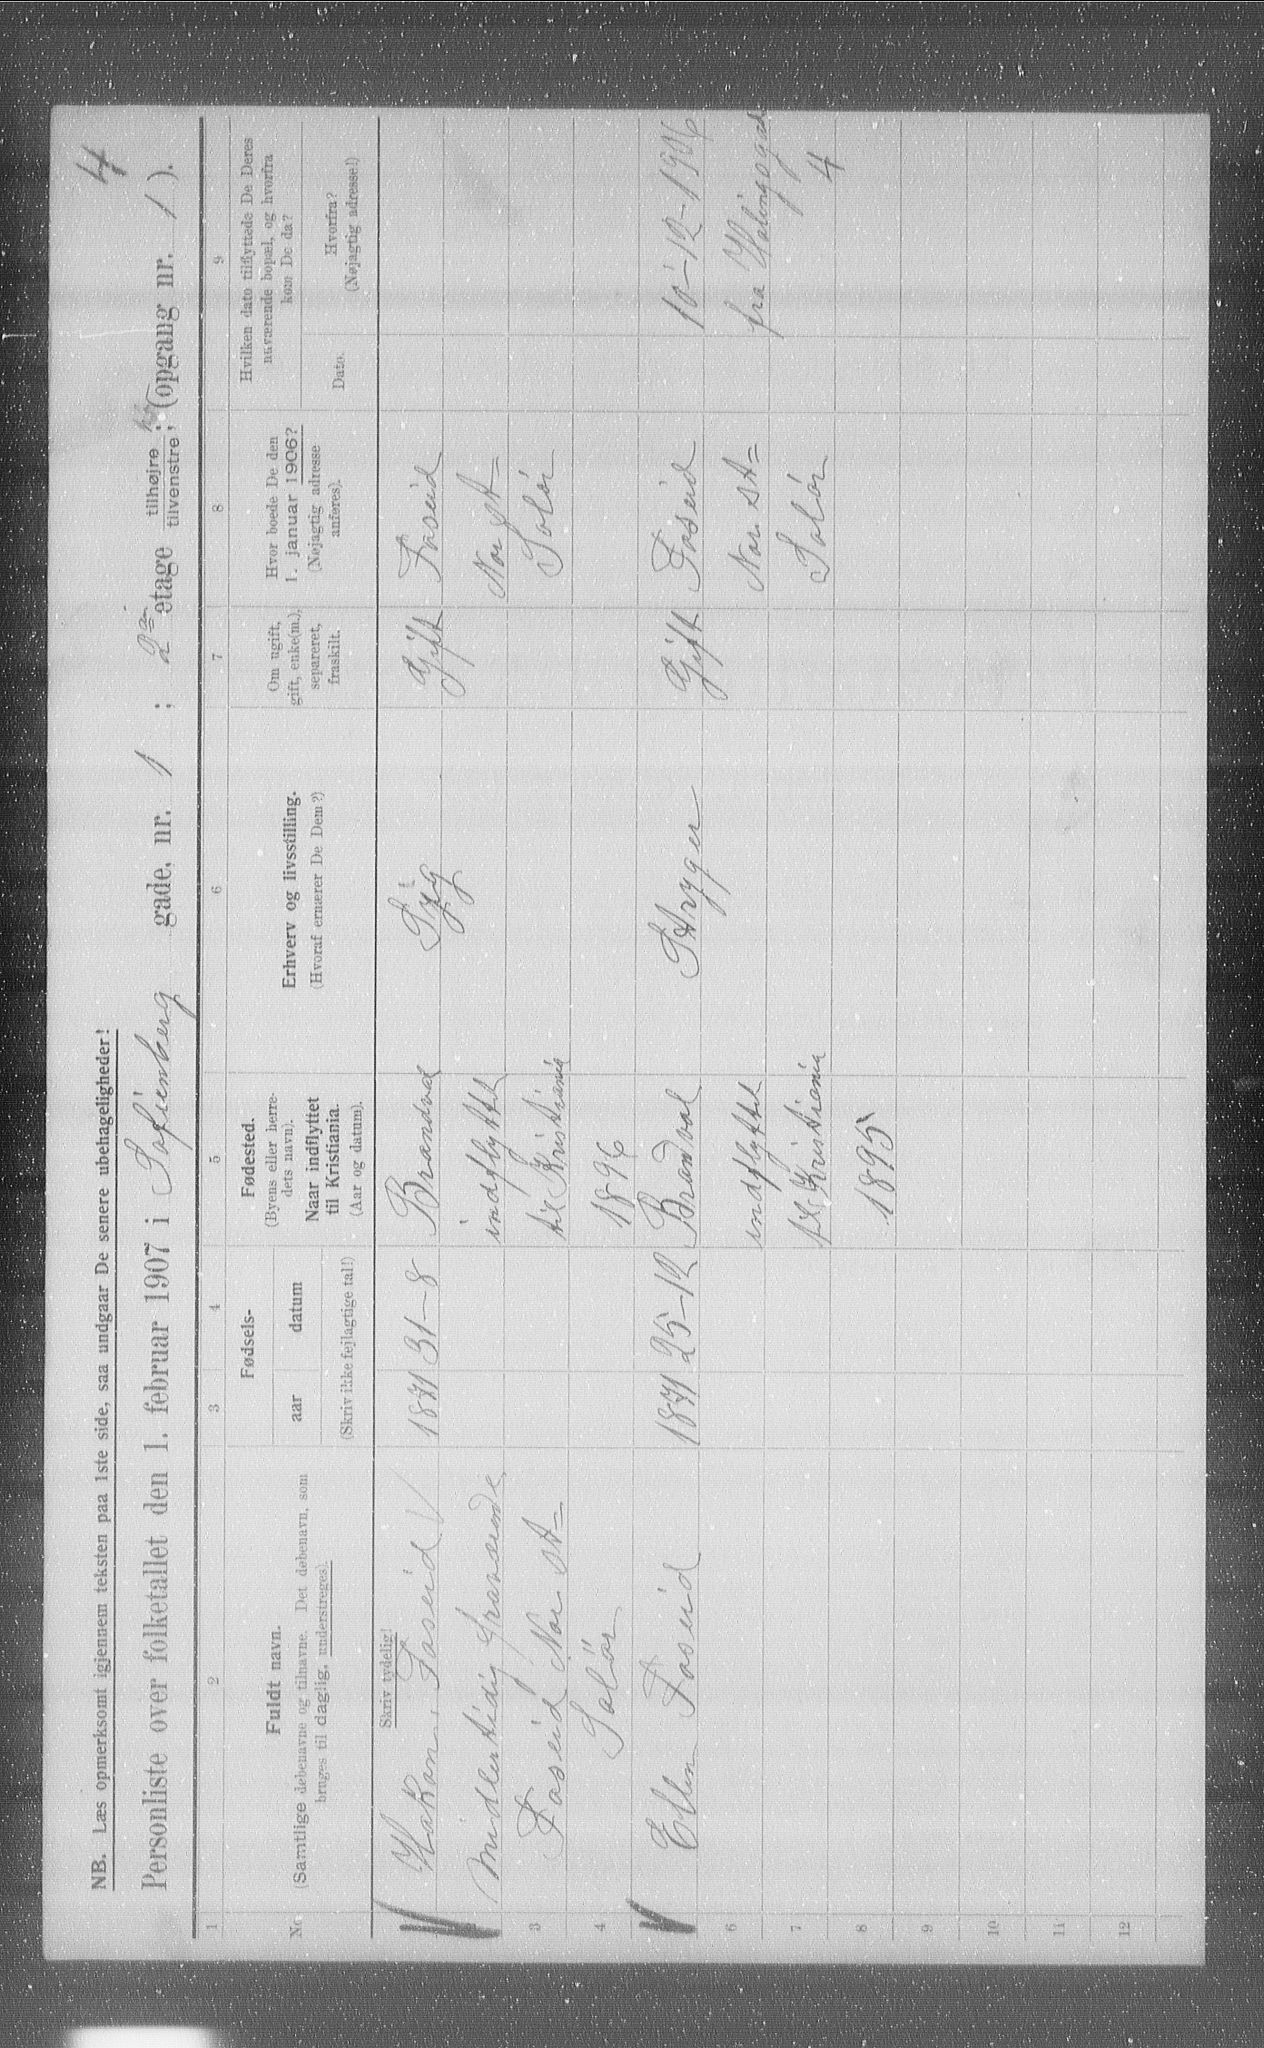 4
NB. Læs opmerksomt igjennem teksten paa 1ste side, saa undgaar De senere ubehageligheder!
Personliste over folketallet den 1. februar 1907 i Sofienberg gade, nr. 1 ; 2 etage tilhøjre tilvenstre; (opgang nr. 1 ).
1 2 3 4 5 6 7 8 9
No.
Fuldt navn.
(Samtlige døbenavne og tilnavne. Det døbenavn, som
bruges til daglig, understreges).
Fødsels-
aar datum
(Skriv ikke fejlagtige tal!)
Fødested.
(Byens eller herre-
dets navn).
Naar indflyttet
til Kristiania.
(Aar og datum).
Erhverv og livsstilling.
(Hvoraf ernærer De Dem?)
Om ugift,
gift, enke(m.),
separeret,
fraskilt.
Hvor boede De den
1. januar 1906?
(Nøjagtig adresse
anføres).
Hvilken dato tilflyttede De Deres
nuværende bopæl, og hvorfra
kom De da?
Dato.
Hvorfra?
(Nøjagtig adresse!)
Skriv tydelig!
Hakon Foseid 1871 31-8 Brandval Gift Foseid
2 midlertidig fraværende indflyttet Nor st=
3 Foseid Nor st= til Kristiania Solør
4 Solør 1896
Elen Foseid 1871 25-12 Brandval Stryger Gift Foseid 10-12-1906
6 indflyttet Nor st= fra
7 til Kristiania Solør 4
8 1895
9
10
11
12